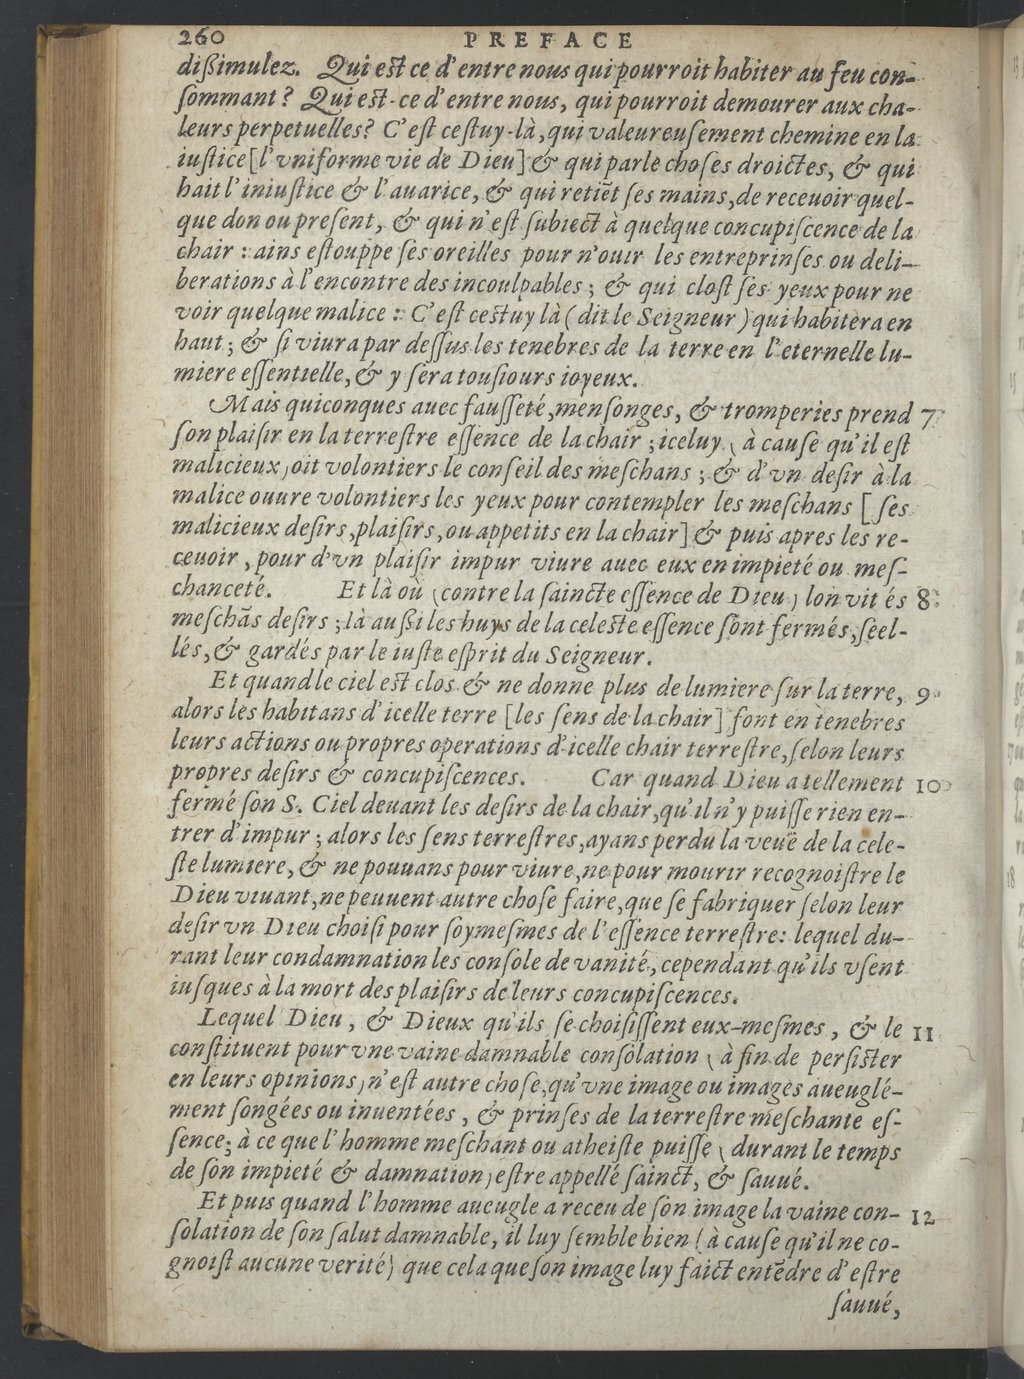 260 PREFACE
dißimulez. Qui est ce d'entre nous qui pourroit habiter au feu con-
ſommant? Qui est-ce d'entre nous, qui pourroit demourer aux cha-
leurs perpetuelles? C'eſt ceſtuy-là, qui valeureuſement chemine en la
iuſtice [l'vniforme vie de Dieu] & qui parle choſes droictes, & qui
hait l'iniuſtice & l'auarice, & qui retiẽt ſes mains, de receuoir quel-
que don ou preſent, & qui n'eſt ſubiect à quelque concupiſcence de la
chair : ains eſtouppe ſes oreilles pour n'ouir les entreprinſes ou deli-
berations à l'encontre des incoulpables ; & qui cloſt ſes yeux pour ne
voir quelque malice : C'eſt cestuy là (dit le Seigneur) qui habitera en
haut ; & ſi viura par deſſus les tenebres de la terre en l'eternelle lu-
miere eſſentielle, & y ſera touſiours ioyeux.
Mais quiconques auec fauſſeté, menſonges, & tromperies prend 7
ſon plaiſir en la terreſtre eſſence de la chair ; iceluy (à cauſe qu'il eſt
malicieux) oit volontiers le conſeil des meſchans ; & d'vn deſir à la
malice ouure volontiers les yeux pour contempler les meſchans [ſes
malicieux deſirs, plaiſirs, ou appetits en la chair] & puis apres les re-
ceuoir, pour d'vn plaiſir impur viure auec eux en impieté ou meſ-
chanceté. Et là où (contre la ſaincte eſſence de Dieu) lon vit és 8
meſchãs deſirs ; là außi les huys de la celeste eſſence ſont fermés, ſeel-
lés, & gardés par le iuſte eſprit du Seigneur.
Et quand le ciel est clos & ne donne plus de lumiere ſur la terre, 9
alors les habitans d'icelle terre [les ſens de la chair] font en tenebres
leurs actions ou propres operations d'icelle chair terreſtre, ſelon leurs
propres deſirs & concupiſcences. Car quand Dieu a tellement 10
fermé ſon S. Ciel deuant les deſirs de la chair, qu'il n'y puiſſe rien en-
trer d'impur ; alors les ſens terreſtres, ayans perdu la veuë de la cele-
ſte lumiere, & ne pouuans pour viure, ne pour mourir recognoiſtre le
Dieu viuant, ne peuuent autre choſe faire, que ſe fabriquer ſelon leur
deſir vn Dieu choiſi pour ſoymeſmes de l'eſſence terreſtre: lequel du-
rant leur condamnation les conſole de vanité, cependant qu'ils vſent
iuſques à la mort des plaiſirs de leurs concupiſcences.
Lequel Dieu, & Dieux qu'ils ſe choiſiſſent eux-meſmes, & le 11
conſtituent pour vne vaine damnable conſolation (à fin de perſiſter
en leurs opinions) n'eſt autre choſe, qu'vne image ou images aueuglé-
ment ſongées ou inuentées, & prinſes de la terreſtre meſchante eſ-
ſence; à ce que l'homme meſchant ou atheiſte puiſſe (durant le temps
de ſon impieté & damnation) eſtre appellé ſainct, & ſauué.
Et puis quand l'homme aueugle a receu de ſon image la vaine con- 12
ſolation de ſon ſalut damnable, il luy ſemble bien (à cauſe qu'il ne co-
gnoiſt aucune verité) que cela que ſon image luy faict entẽdre d'eſtre
ſauué,